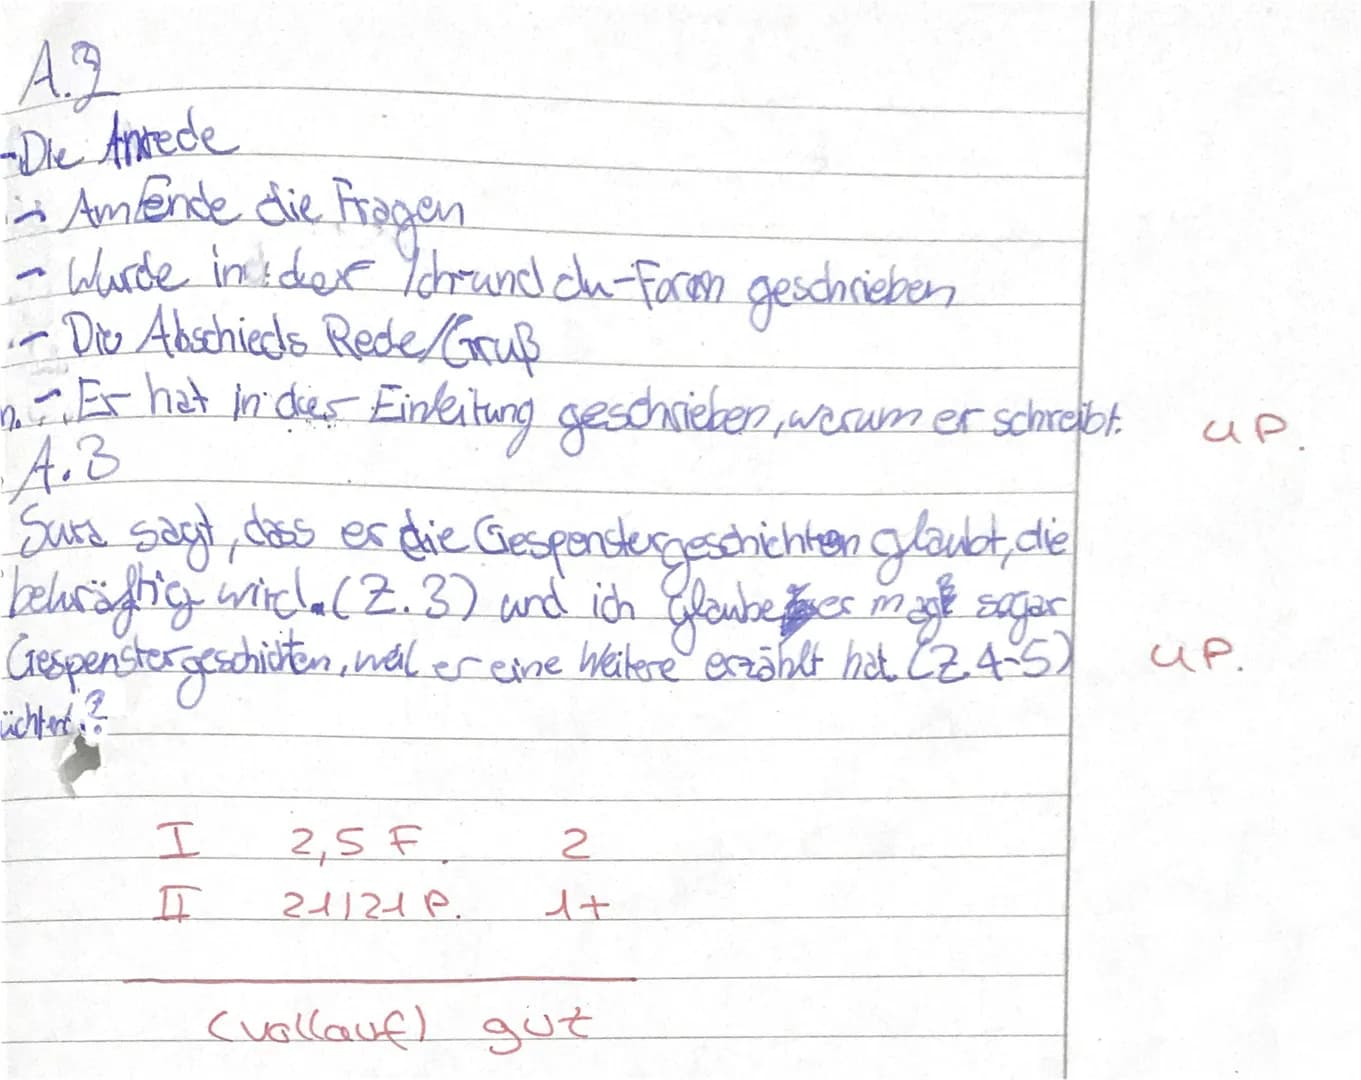 A.2
-Die Anrede
- Am Ende die Fragen
- Wurde in der Ich-und du-Form geschrieben
- Die Abschieds Rede/Gruß
n. - Er hat in der Einleitung geschrieben, warum er schreibt. 4 P.
A.3
Sara sagt, dass er die Gespenstergeschichten glaubt, die
bekräftig wird. (Z.3) und ich Glaube er mag sogar
Gespenstergeschichten, weil er eine Weitere erzählt hat. (Z.4-5) 4 P.
üchtert.?
I 2,5 F. 2
II 21/21 P. 1+
(vollauf) gut